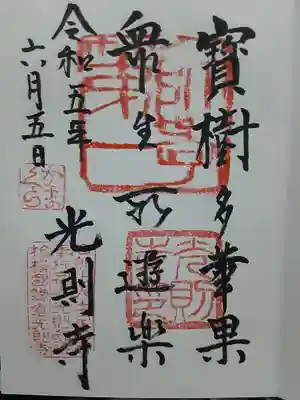 寶樹多華果
衆生所遊樂
令和五年
六月五日
光則寺
かまくら